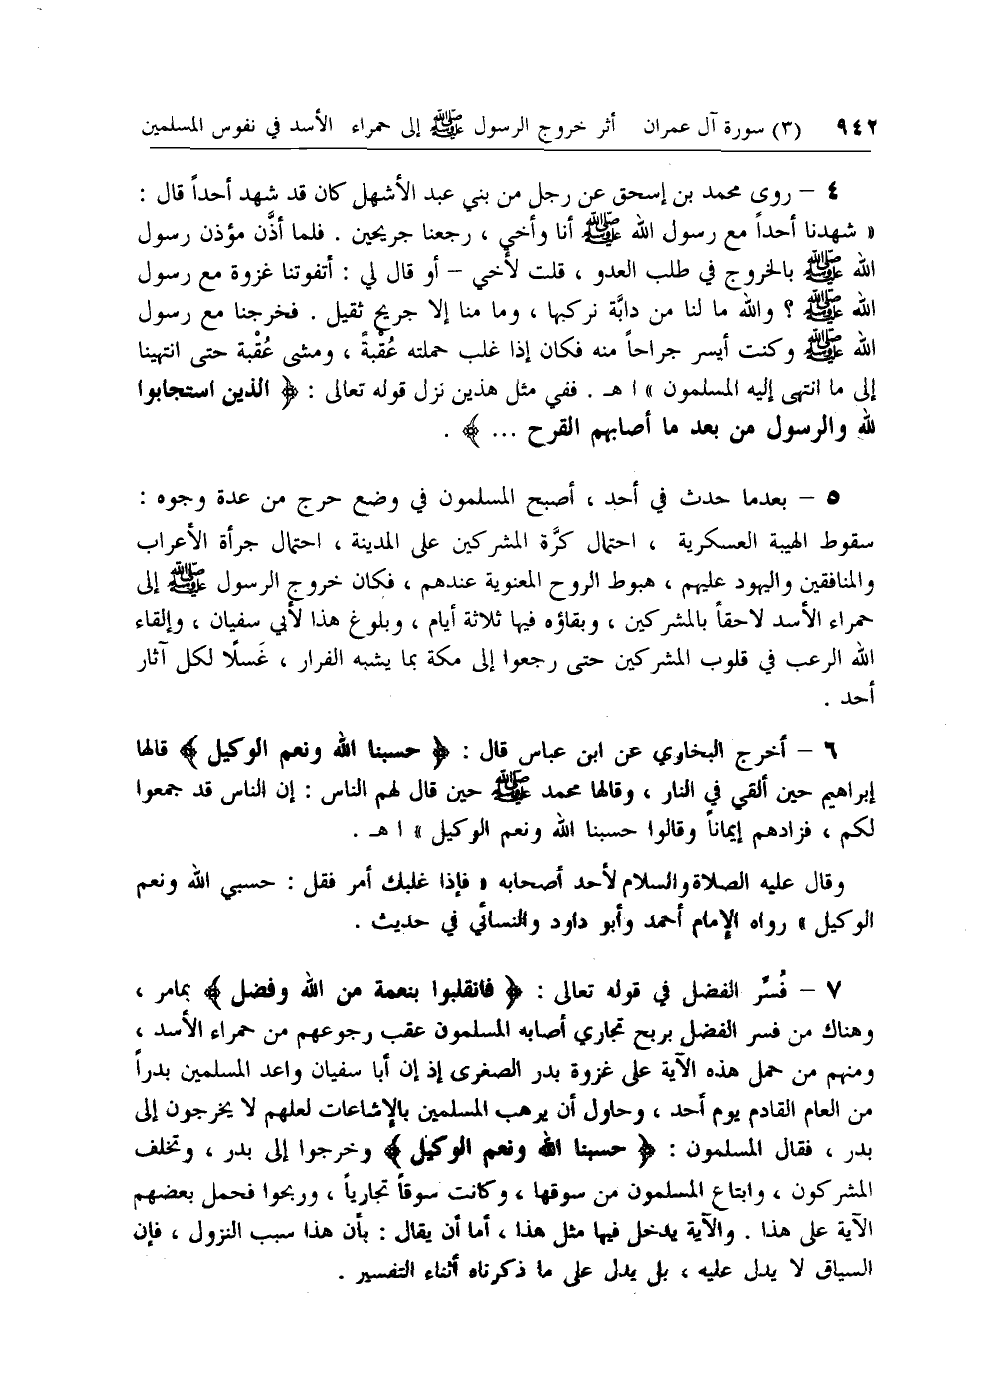 ٩٤٢ (٣) سورة آل عمران أثر خروج الرسول ﷺ إلى حمراء الأسد في نفوس المسلمين
٤ – روى محمد بن إسحق عن رجل من بني عبد الأشهل كان قد شهد أحداً قال :
« شهدنا أحداً مع رسول الله ﷺ أنا وأخي ، رجعنا جريحين . فلما أذَّن مؤذن رسول
الله ﷺ بالخروج في طلب العدو ، قلت لأخي – أو قال لي : أتفوتنا غزوة مع رسول
الله ﷺ ؟ والله ما لنا من دابَّة نركبها ، وما منا إلا جريح ثقيل . فخرجنا مع رسول
الله ﷺ وكنت أيسر جراحاً منه فكان إذا غلب حملته عُقْبةً ، ومشى عُقْبة حتى انتهينا
إلى ما انتهى إليه المسلمون » ا هـ . ففي مثل هذين نزل قوله تعالى : ﴿ الذين استجابوا
لله والرسول من بعد ما أصابهم القرح ... ﴾ .
٥ – بعدما حدث في أحد ، أصبح المسلمون في وضع حرج من عدة وجوه :
سقوط الهيبة العسكرية ، احتمال كرَّة المشركين على المدينة ، احتمال جرأة الأعراب
والمنافقين واليهود عليهم ، هبوط الروح المعنوية عندهم ، فكان خروج الرسول ﷺ إلى
حمراء الأسد لاحقاً بالمشركين ، وبقاؤه فيها ثلاثة أيام ، وبلوغ هذا لأبي سفيان ، وإلقاء
الله الرعب في قلوب المشركين حتى رجعوا إلى مكة بما يشبه الفرار ، غَسلًا لكل آثار
أحد .
٦ – أخرج البخاوي عن ابن عباس قال : ﴿ حسبنا الله ونعم الوكيل ﴾ قالها
إبراهيم حين ألقي في النار ، وقالها محمد ﷺ حين قال لهم الناس : إن الناس قد جمعوا
لكم ، فزادهم إيماناً وقالوا حسبنا الله ونعم الوكيل » ا هـ .
وقال عليه الصلاة والسلام لأحد أصحابه « فإذا غلبك أمر فقل : حسبي الله ونعم
الوكيل » رواه الإمام أحمد وأبو داود والنسائي في حديث .
٧ – فُسِّر الفضل في قوله تعالى : ﴿ فانقلبوا بنعمة من الله وفضل ﴾ بمامر ،
وهناك من فسر الفضل بربح تجاري أصابه المسلمون عقب رجوعهم من حمراء الأسد ،
ومنهم من حمل هذه الآية على غزوة بدر الصغرى إذ إن أبا سفيان واعد المسلمين بدراً
من العام القادم يوم أحد ، وحاول أن يرهب المسلمين بالإشاعات لعلهم لا يخرجون إلى
بدر ، فقال المسلمون : ﴿ حسبنا الله ونعم الوكيل ﴾ وخرجوا إلى بدر ، وتخلف
المشركون ، وابتاع المسلمون من سوقها ، وكانت سوقاً تجارياً ، وربحوا فحمل بعضهم
الآية على هذا . والآية يدخل فيها مثل هذا ، أما أن يقال : بأن هذا سبب النزول ، فإن
السياق لا يدل عليه ، بل يدل على ما ذكرناه أثناء التفسير .